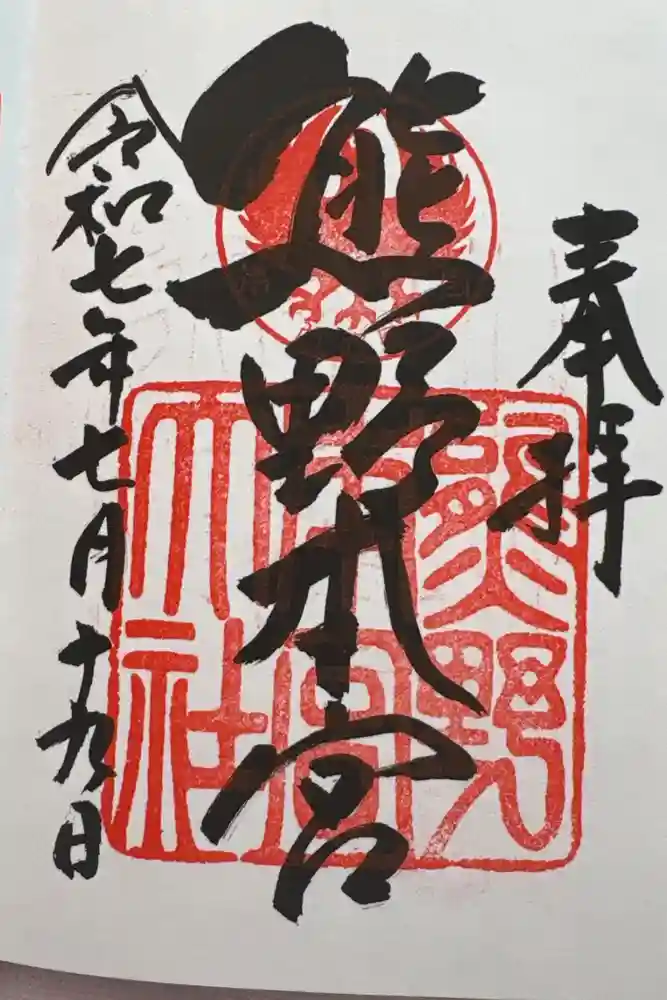 奉拝
熊野本宮
令和七年七月十九日
熊野
本宮
大社